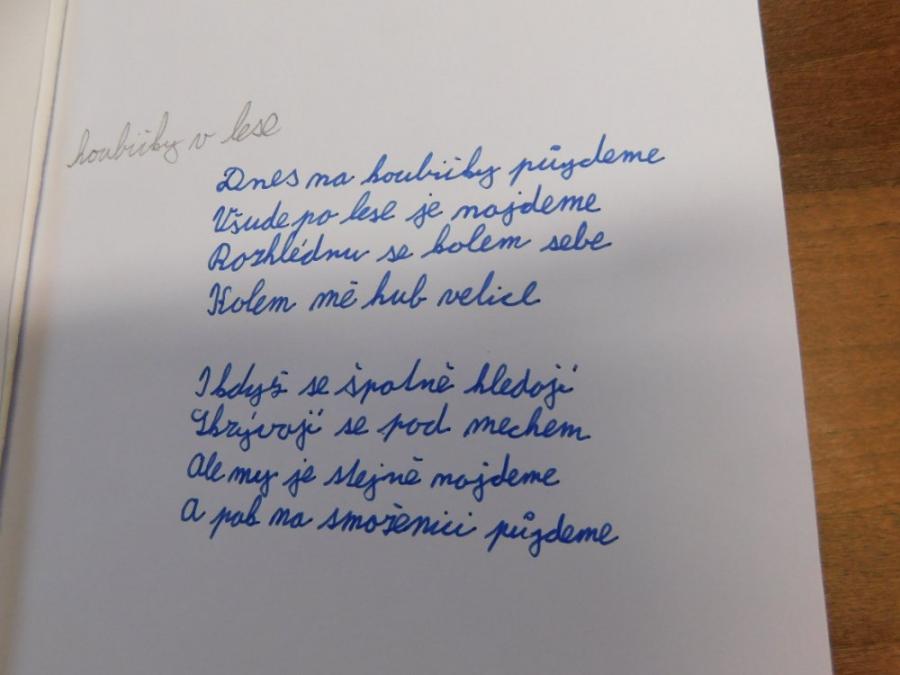 houbičky v lese
Dnes na houbičky půjdeme
Všude po lese je najdeme
Rozhlédnu se kolem sebe
Kolem mě hub velice
I když se špatně hledají
Skrývají se pod mechem
Ale my je stejně najdeme
A pak na smaženici půjdeme